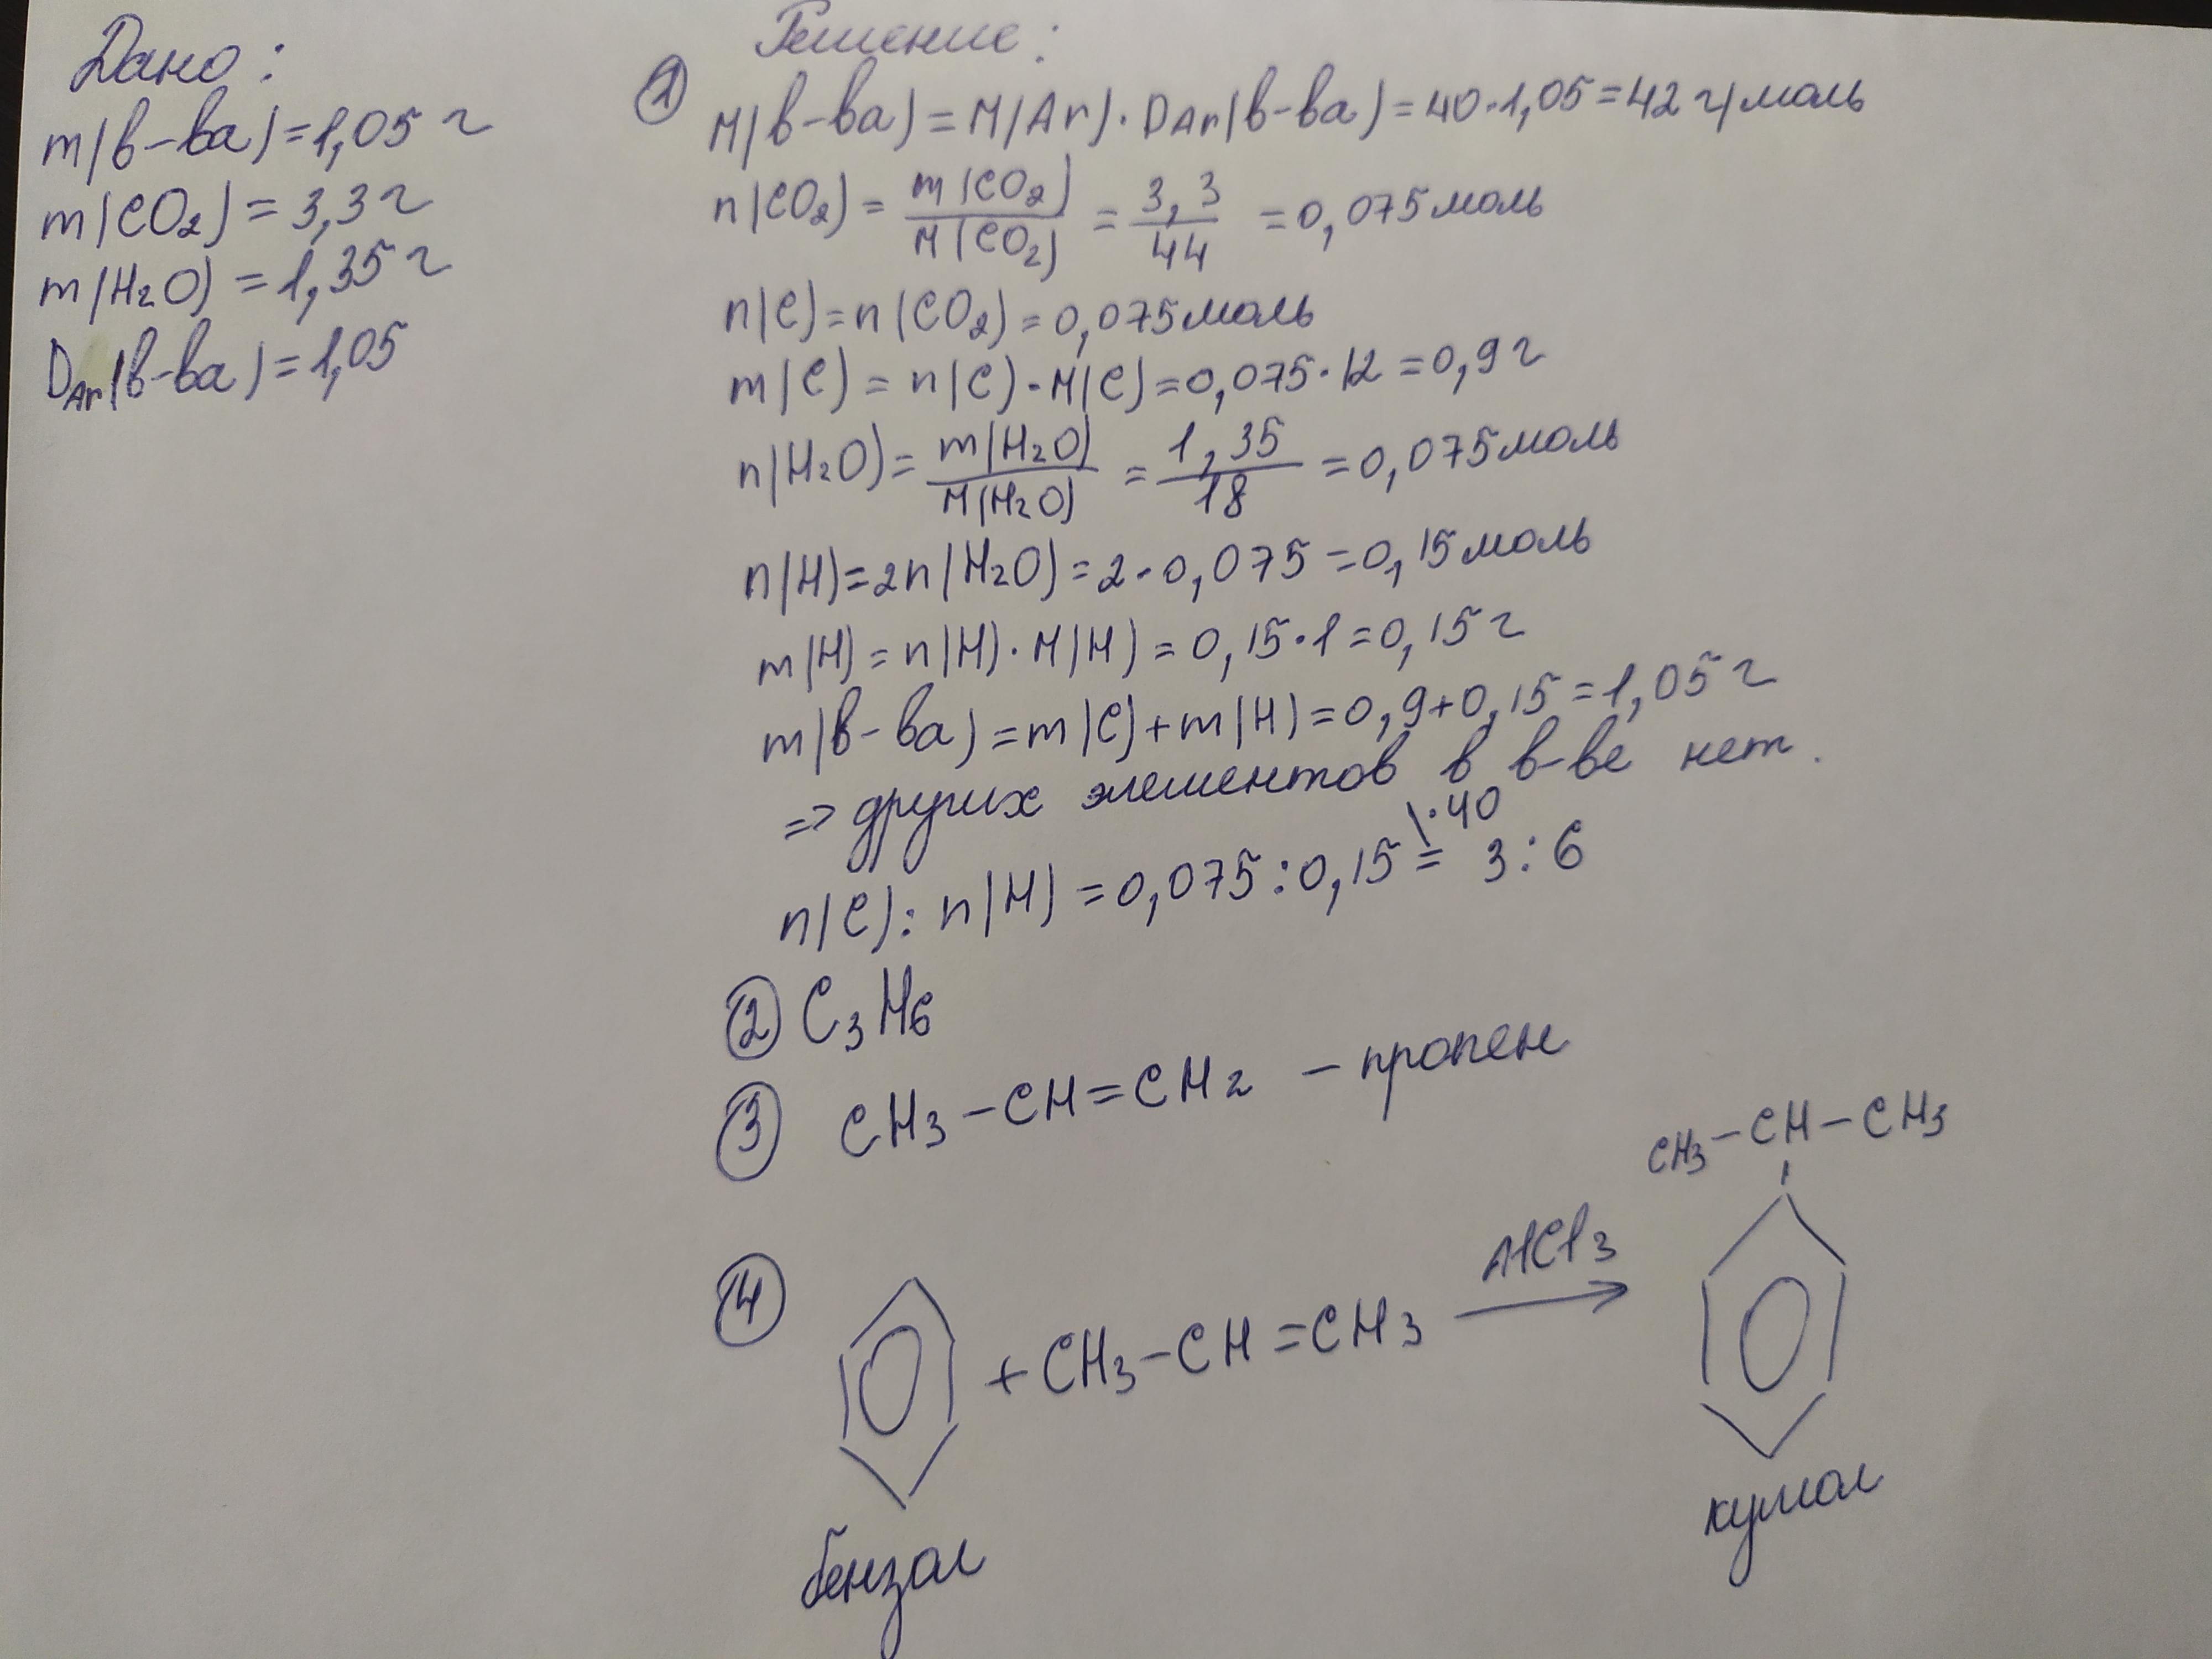 Дано:
m(в-ва)=1,05 г
m(CO₂)=3,3 г
m(H₂O)=1,35 г
D_Ar(в-ва)=1,05
Решение:
① M(в-ва)=M(Ar)·D_Ar(в-ва)=40·1,05=42 г/моль
n(CO₂)=m(CO₂)/M(CO₂)=3,3/44=0,075 моль
n(C)=n(CO₂)=0,075 моль
m(C)=n(C)·M(C)=0,075·12=0,9 г
n(H₂O)=m(H₂O)/M(H₂O)=1,35/18=0,075 моль
n(H)=2n(H₂O)=2·0,075=0,15 моль
m(H)=n(H)·M(H)=0,15·1=0,15 г
m(в-ва)=m(C)+m(H)=0,9+0,15=1,05 г
=> других элементов в в-ве нет.
\·40
n(C):n(H)=0,075:0,15=3:6
② C₃H₆
③ CH₃-CH=CH₂ - пропен
CH₃-CH-CH₃
④ +CH₃-CH=CH₃ AlCl₃ →
бензол кумол